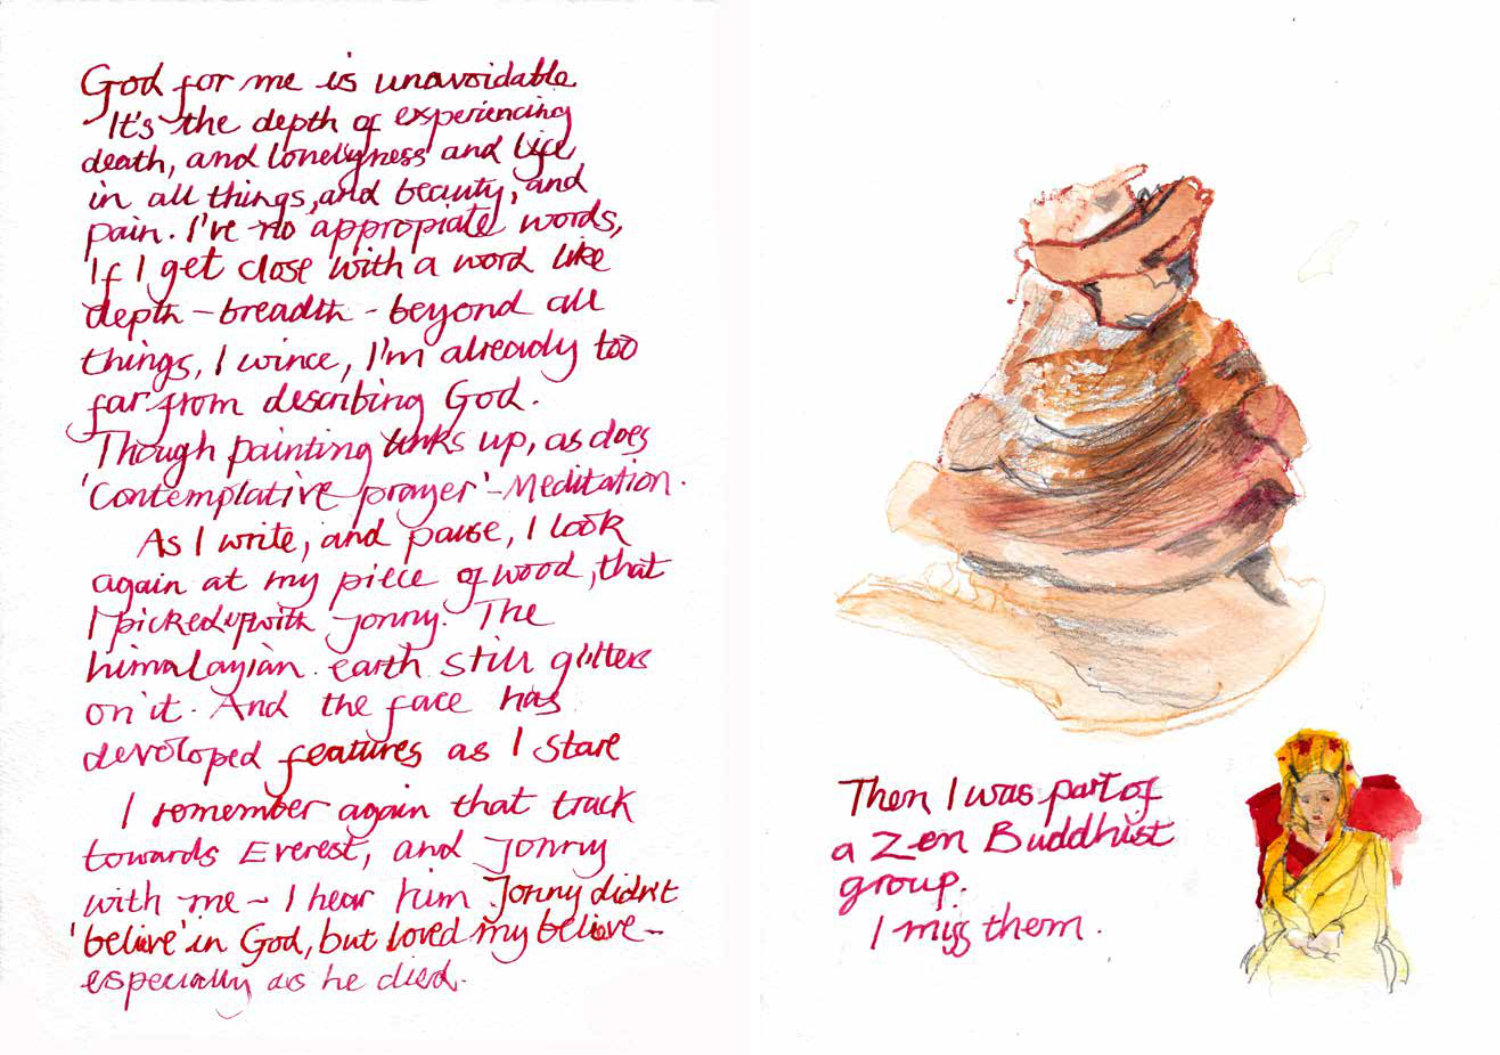 God for me is unavoidable
It's the depth of experiencing
death, and lonelyness and life
in all things, and beauty, and
pain. I've no appropiate words,
If I get close with a word like
depth – breadth - beyond all
things, I wince, I'm already too
far from describing God.
Though painting links up, as does
'Contemplative prayer' - Meditation.
As I write, and pause, I look
again at my piece of wood, that
I picked up with Jonny. The
himalayian earth still glitters
on it. And the face has
developed features as I stare
I remember again that track
towards Everest, and Jonny
with me - I hear him Jonny didn't
'believe' in God, but loved my believe -
especially as he died.
Then I was part of
a Zen Buddhist
group.
I miss them.